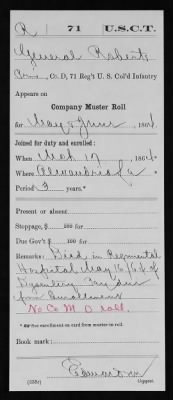 R | 71 | U.S.C.T.
General Roberts
Co. D, 71 Reg't U. S. Col'd Infantry
Appears on
Company Muster Roll
for May & June, 1864.
Joined for duty and enrolled:
When Mch 17, 1864.*
Where Alexandria La
Period 3 years.*
Present or absent
Stoppage, $ 100 for
Due Gov't $ 100 for
Remarks: Died in Regimental
Hospital May 16/64 of
Dysentery Pay due
from Enrollment
No Co M. O roll.
* See enrollment on card from muster-in roll.
Book mark:
(358c)
Copyist.